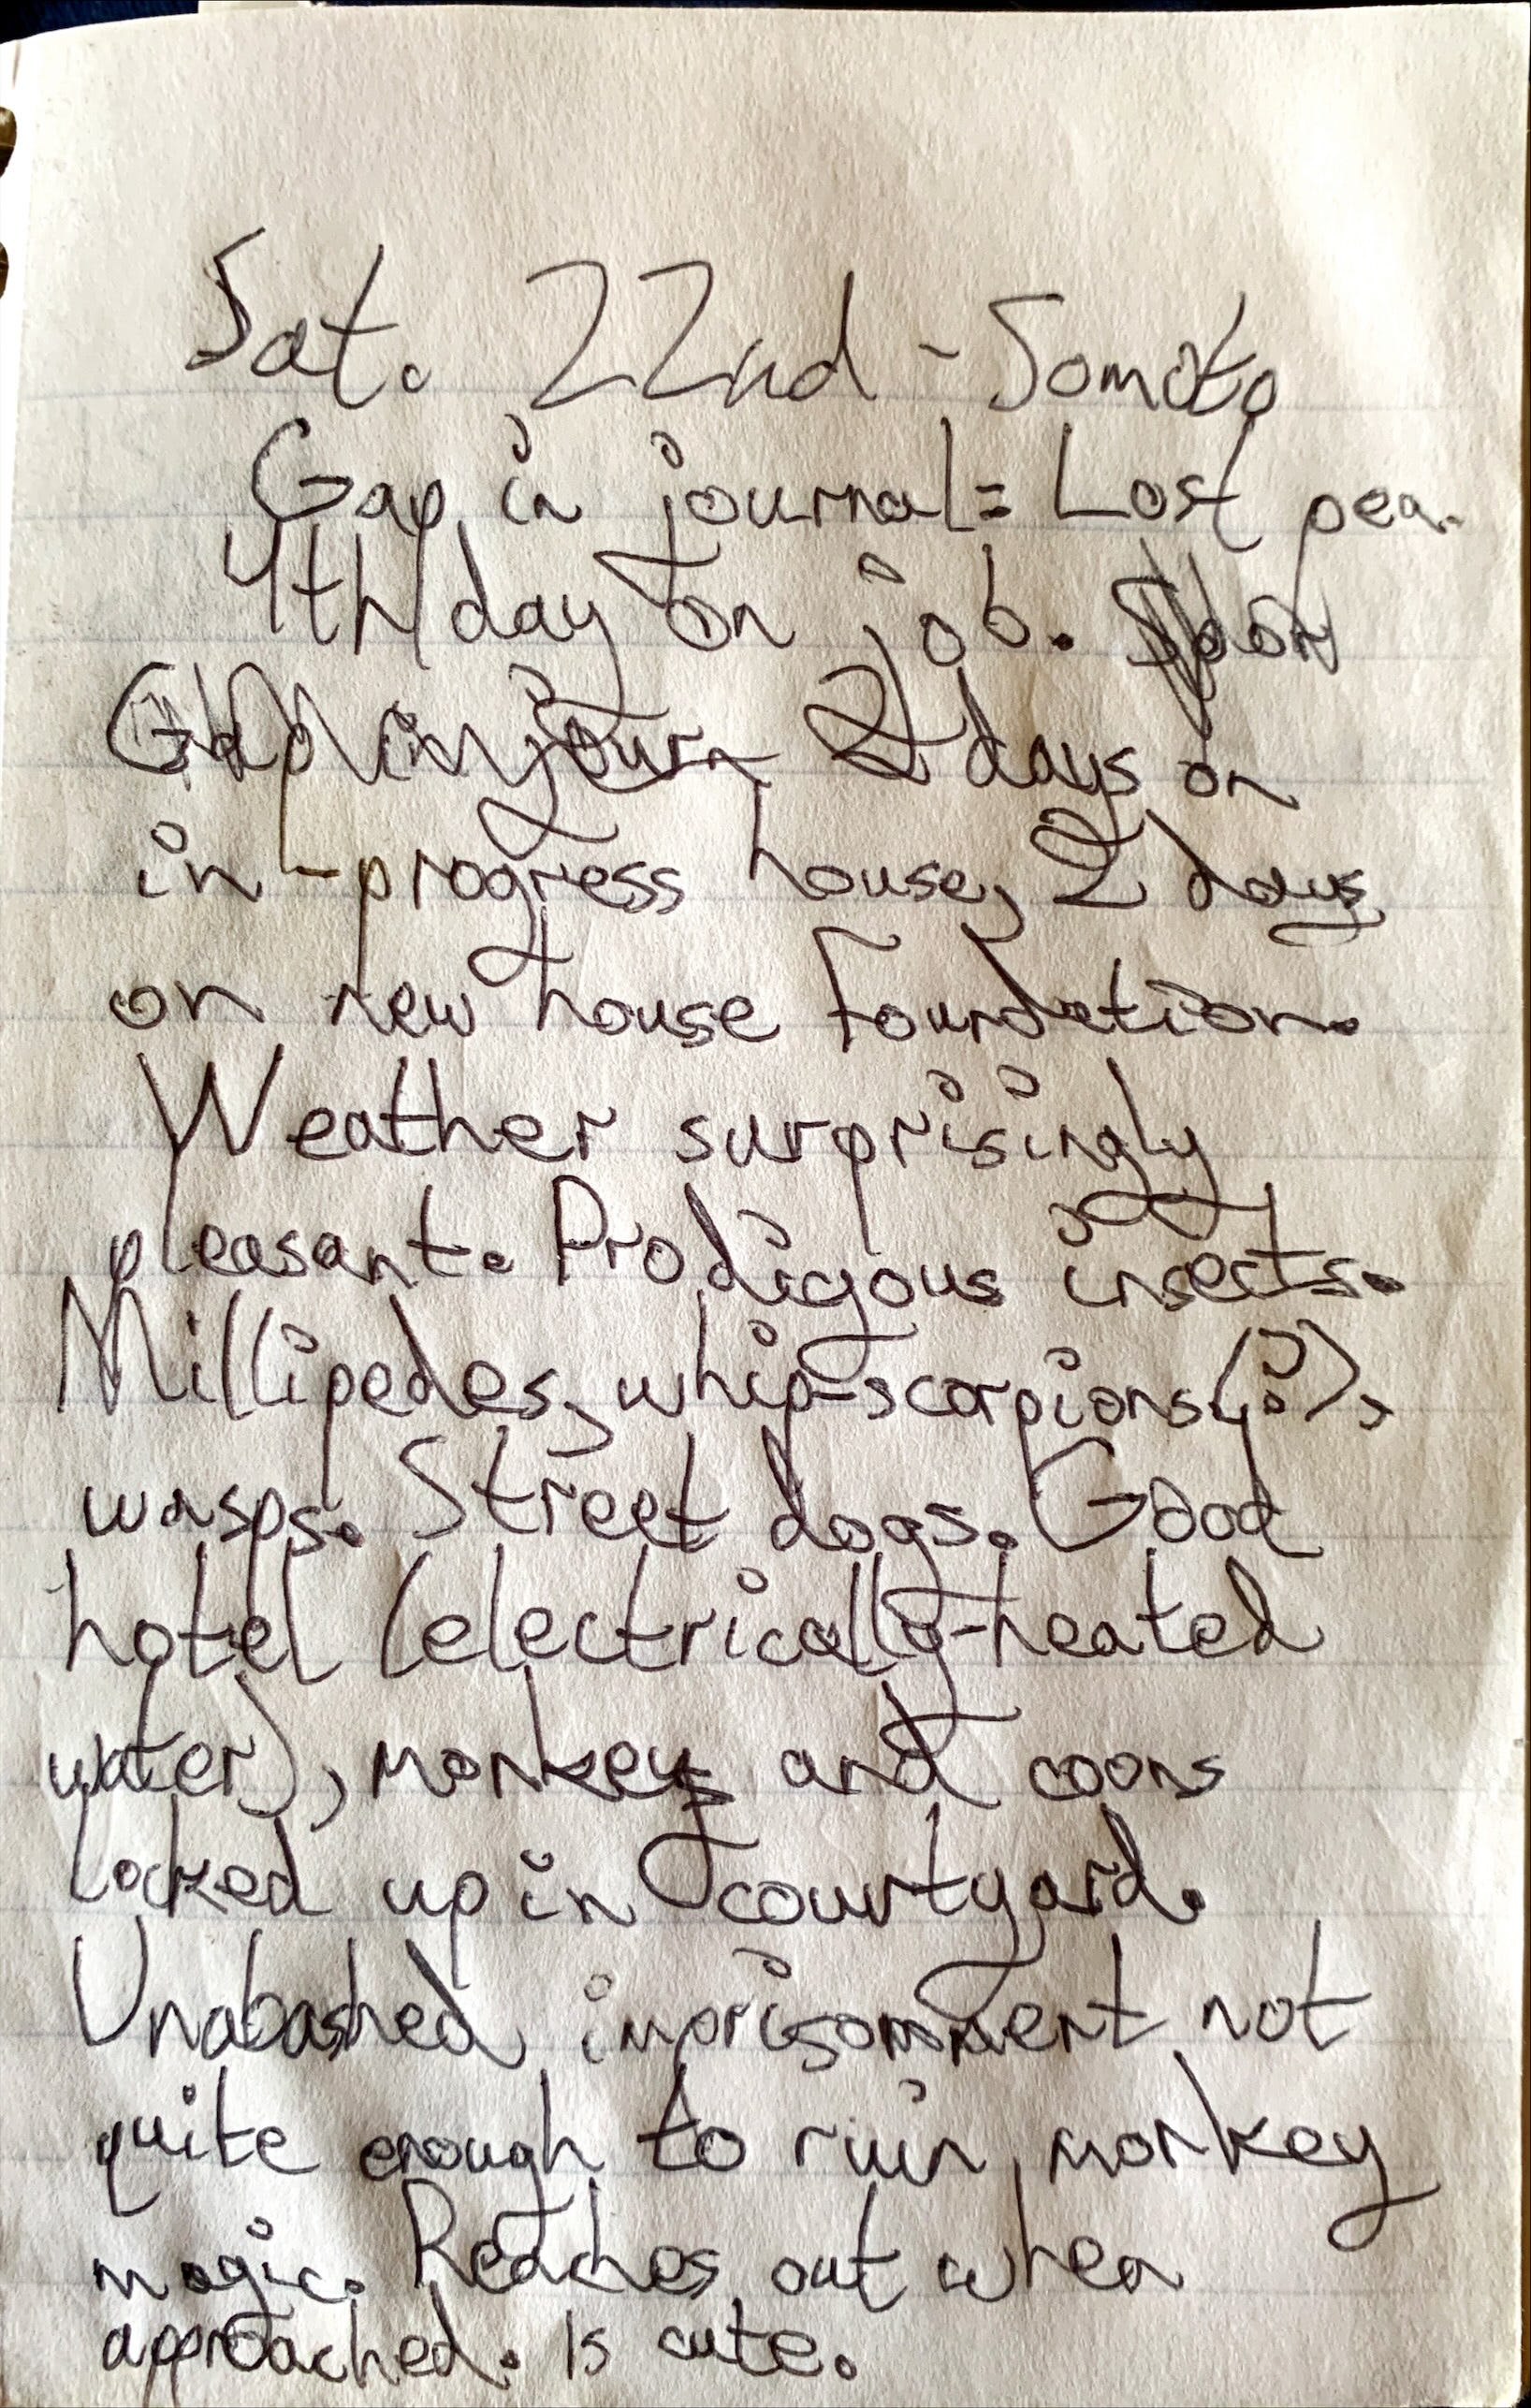 Sat. 22nd - Somoto
Gap in journal = Lost pen.
4th day on job.
Gap in journ 2 days on
in-progress house, 2 days
on new house foundation.
Weather surprisingly
pleasant. Prodigous insects.
Millipedes, whip-scorpions(?),
wasps. Street dogs. Good
hotel (electrically-heated
water), monkeys and coons
locked up in courtyard.
Unabashed imprisonment not
quite enough to ruin monkey
magic. Reaches out when
approached. Is cute.